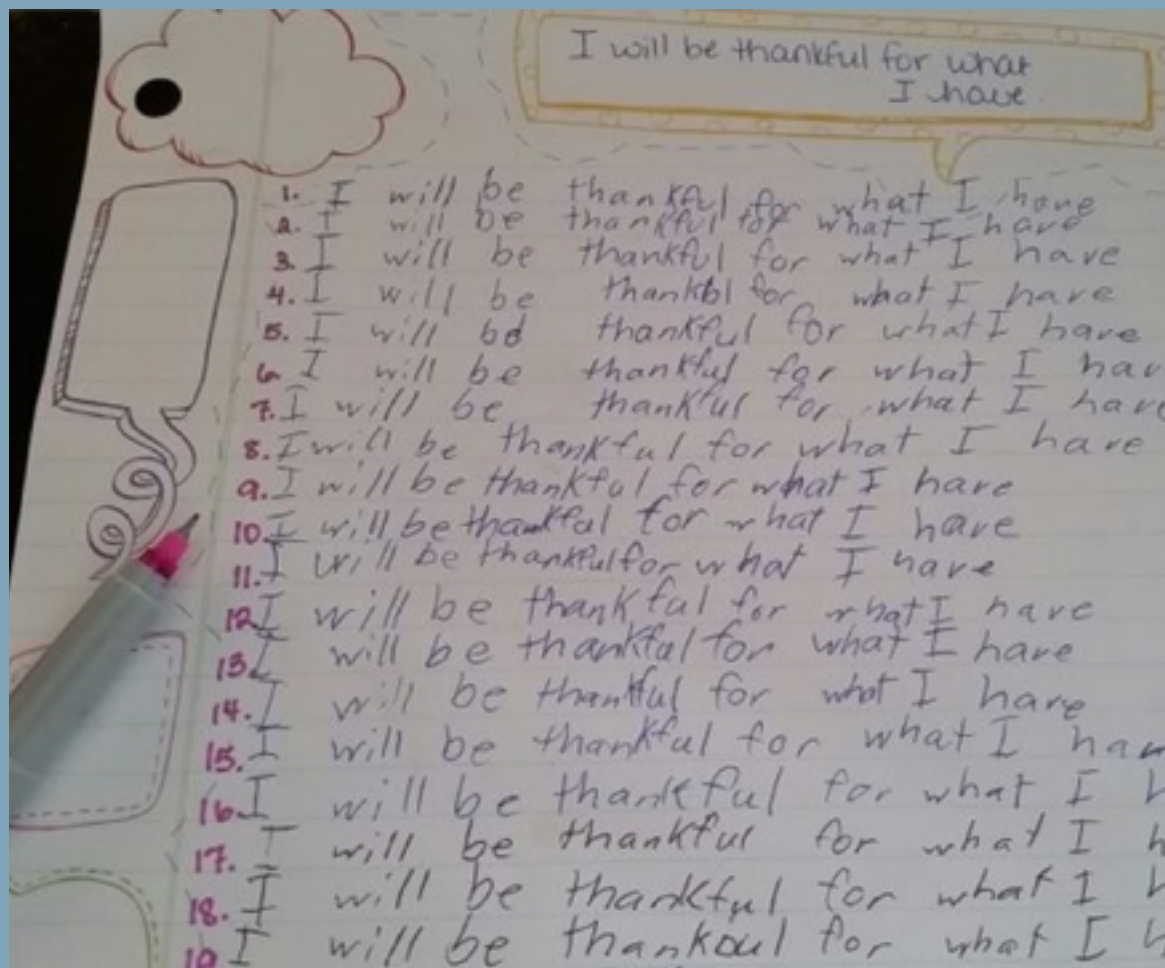 I will be thankful for what
I have.
1. I will be thankful for what I have
2. I will be thankful for what I have
3. I will be thankful for what I have
4. I will be thankbl for what I have
5. I will bd thankful for what I have
6. I will be thankful for what I hav
7. I will be thankful for what I have
8. I will be thankful for what I have
9. I will be thankful for what I have
10. I will be thankful for what I have
11. I will be thankful for what I have
12 I will be thankful for what I have
13. I will be thankful for what I have
14. I will be thankful for what I have
15. I will be thankful for what I hav
16. I will be thankful for what I h
17. I will be thankful for what I h
18. I will be thankful for what I h
19 I will be thankoul for what I h